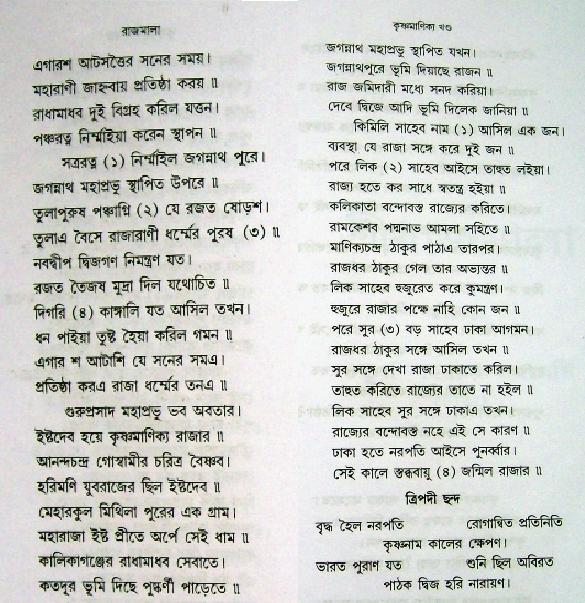 রাজমালা
এগারশ আটসত্তৈর সনের সময়।
মহারাণী জাহ্নবায় প্রতিষ্ঠা করয় ॥
রাধামাধব দুই বিগ্রহ করিল যতন।
পঞ্চরত্ন নির্ম্মাইয়া করেন স্থাপন ॥
সত্ররত্ন (১) নির্ম্মাইল জগন্নাথ পূরে।
জগন্নাথ মহাপ্রভূ স্থাপিত উপরে ॥
তুলাপুরুষ পঞ্চাগ্নি (২) যে রজত ষোড়শ।
তুলাএ বৈসে রাজারাণী ধর্ম্মের পূরষ (৩) ॥
নবদ্বীপ দ্বিজগণ নিমন্ত্রণ যত।
রজত তৈজষ মূদ্রা দিল যথোচিত ॥
দিগরি (৪) কাঙ্গালি যত আসিল তখন।
ধন পাইয়া তুষ্ট হৈয়া করিল গমন ॥
এগার শ আটাশি যে সনের সমএ।
প্রতিষ্ঠা করএ রাজা ধর্ম্মের তনএ ॥
গুরুপ্রসাদ মহাপ্রভূ ভব অবতার।
ইষ্টদেব হয়ে কৃষ্ণমাণিক্য রাজার ॥
আনন্দচন্দ্র গোস্বামীর চরিত্র বৈষ্ণব।
হরিমণি যুবরাজের ছিল ইষ্টদেব ॥
মেহারকুল মিথিলা পুরের এক গ্রাম।
মহারাজা ইষ্ট প্রীতে অর্পে সেই ধাম ॥
কালিকাগঞ্জের রাধামাধব সেবাতে।
কতদূর ভূমি দিছে পুষ্কর্ণী পাড়েতে ॥
কৃষ্ণমাণিক্য খণ্ড
জগন্নাথ মহাপ্রভূ স্থাপিত যখন।
জগন্নাথপুরে ভূমি দিয়াছে রাজন ॥
রাজ জমিদারী মধ্যে সনদ করিয়া।
দেবে দ্বিজে আদি ভূমি দিলেক জানিয়া ॥
কিমিলি সাহেব নাম (১) আসিল এক জন।
ব্যবস্থা যে রাজা সঙ্গে করে দুই জন ॥
পরে লিক (২) সাহেব আইসে তাহুত লইয়া।
রাজ্য হতে কর সাধে স্বতন্ত্র হইয়া ॥
কলিকাতা বন্দোবস্ত রাজ্যের করিতে।
রামকেশব পদ্মনাভ আমলা সহিতে ॥
মাণিক্যচন্দ্র ঠাকুর পাঠাএ তারপর।
রাজধর ঠাকুর গেল তার অভ্যন্তর ॥
লিক সাহেব হুজুরেত করে কুমন্ত্রণ।
হুজুরে রাজার পক্ষে নাহি কোন জন ॥
পরে সুর (৩) বড় সাহেব ঢাকা আগমন।
রাজধর ঠাকুর সঙ্গে আসিল তখন ॥
সুর সঙ্গে দেখা রাজা ঢাকাতে করিল।
তাহুত করিতে রাজ্যের তাতে না হইল ॥
লিক সাহেব সুর সঙ্গে ঢাকাএ তখন।
রাজ্যের বন্দোবস্ত নহে এই সে কারণ ॥
ঢাকা হতে নরপতি আইসে পুনর্ব্বার।
সেই কালে স্তব্ধবায়ু (৪) জন্মিল রাজার ॥
ত্রিপদী ছন্দ
বৃদ্ধ হৈল নরপতি রোগান্বিত প্রতিনিতি
কৃষ্ণনাম কালের ক্ষেপণ।
ভারত পুরাণ যত শুনি ছিল অবিরত
পাঠক দ্বিজ হরি নারায়ণ।